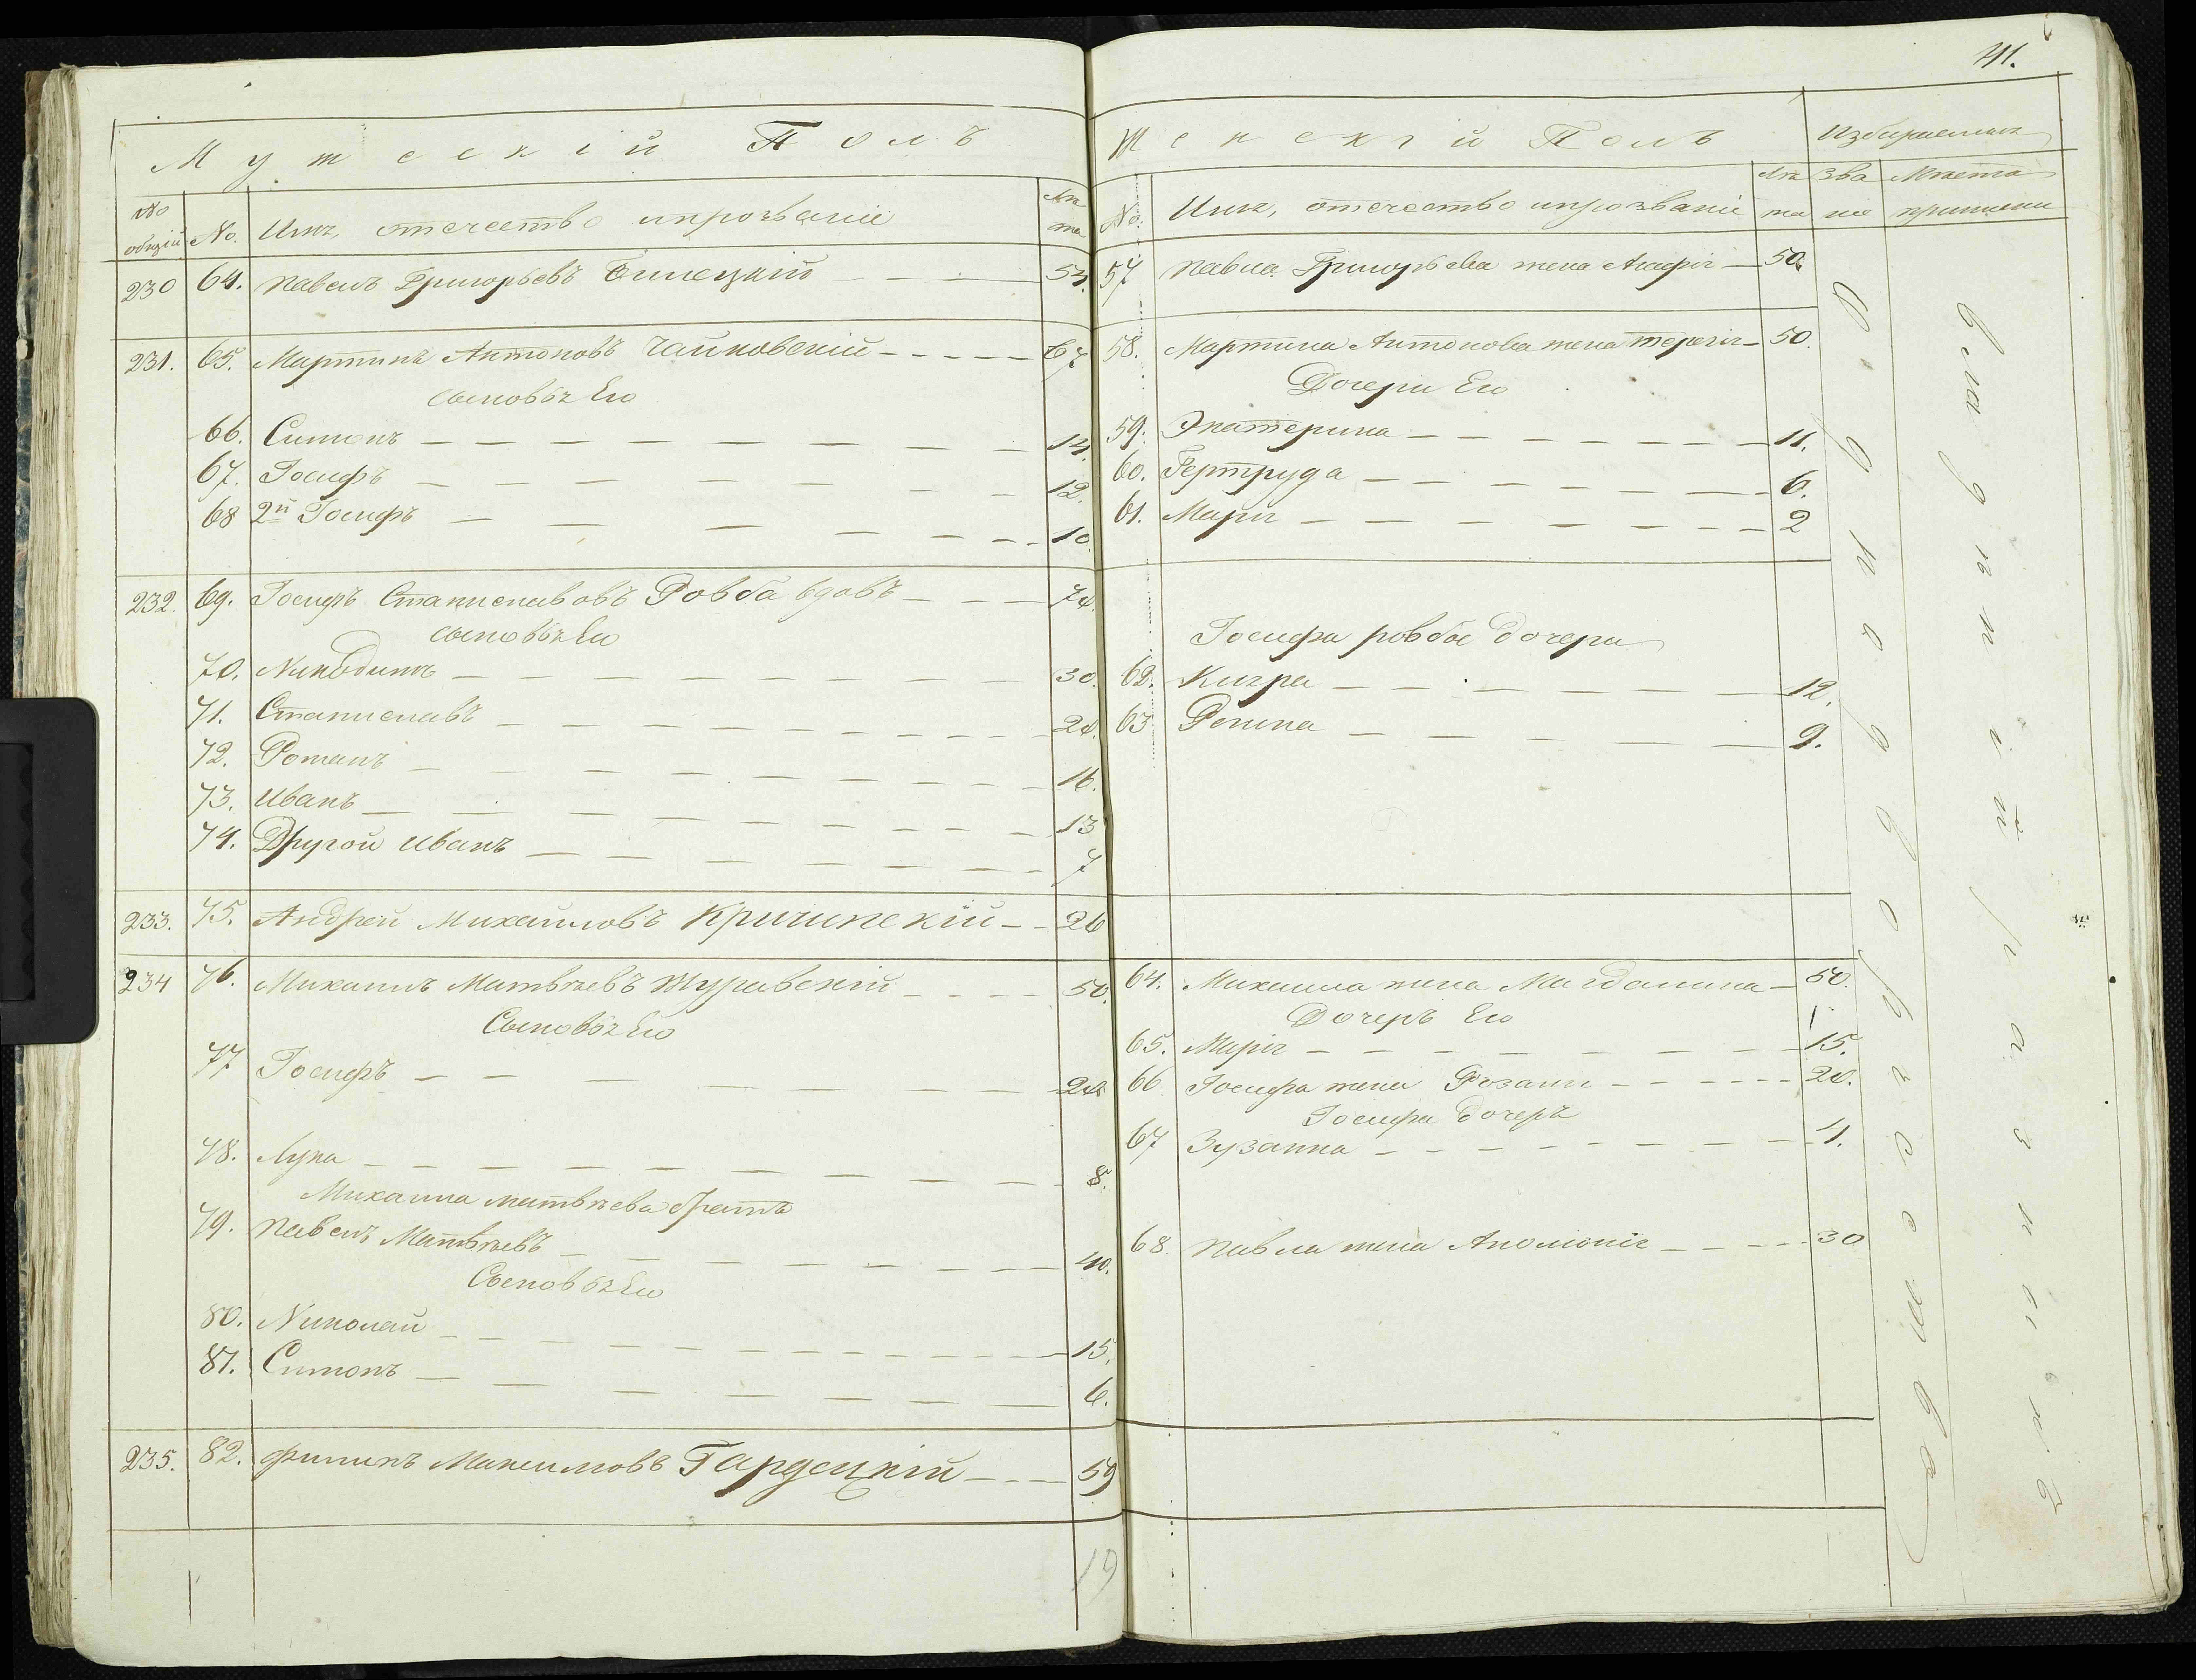 41.
Мужескій Полъ
№ общій
№
Имя, отечество и прозваніе
Лѣта
230 64. Павелъ Григорьевъ Билецкій 54.
231. 65. Мартинъ Антоновъ Чайковскій 67
Сыновья Его
66. Симонъ 14.
67. Іосифъ 12.
68 2й Іосифъ 10.
232. 69. Іосифъ Станиславовъ Ровба вдовъ
Сыновья Его
70. Никодимъ 30.
71. Станиславъ
72. Романъ 16.
73. Иванъ 13
74. Другой Иванъ 7
233. 75. Андрей Михайловъ Кричинскій 26
234 76. Михаилъ Матвѣевъ Журавскій 50.
Сыновья Его
77 Іосифъ
78. Лука 8.
Михаила Матвѣева братъ
79. Павелъ Матвѣевъ 40.
Сыновья Его
80. Николай 15.
81. Симонъ 6.
235. 82. Филипъ Максимовъ Гардецкій 59
19
Женскій Полъ
Избираемыя
№
Имя, отечество и прозваніе
Лѣта
Званіе
Мѣста приписки
57 Павла Григорьева жена Агафія 50.
58. Мартина Антонова жена Терезія 50.
Дочери Его
59. Экатерина 11.
60. Гертруда 6.
61. Марія 2
Іосифа Ровбы дочери
62. Кіяра 12.
63 Ронина 9.
64. Михаила жена Магдалина 50.
Дочерь Его
65. Марія 15.
66 Іосифа жена Розалія 20.
Іосифа дочерь
67 Зузанна 4.
68. Павла жена Аполіонія 30
Однодворчество
въ гильдіи разныхъ